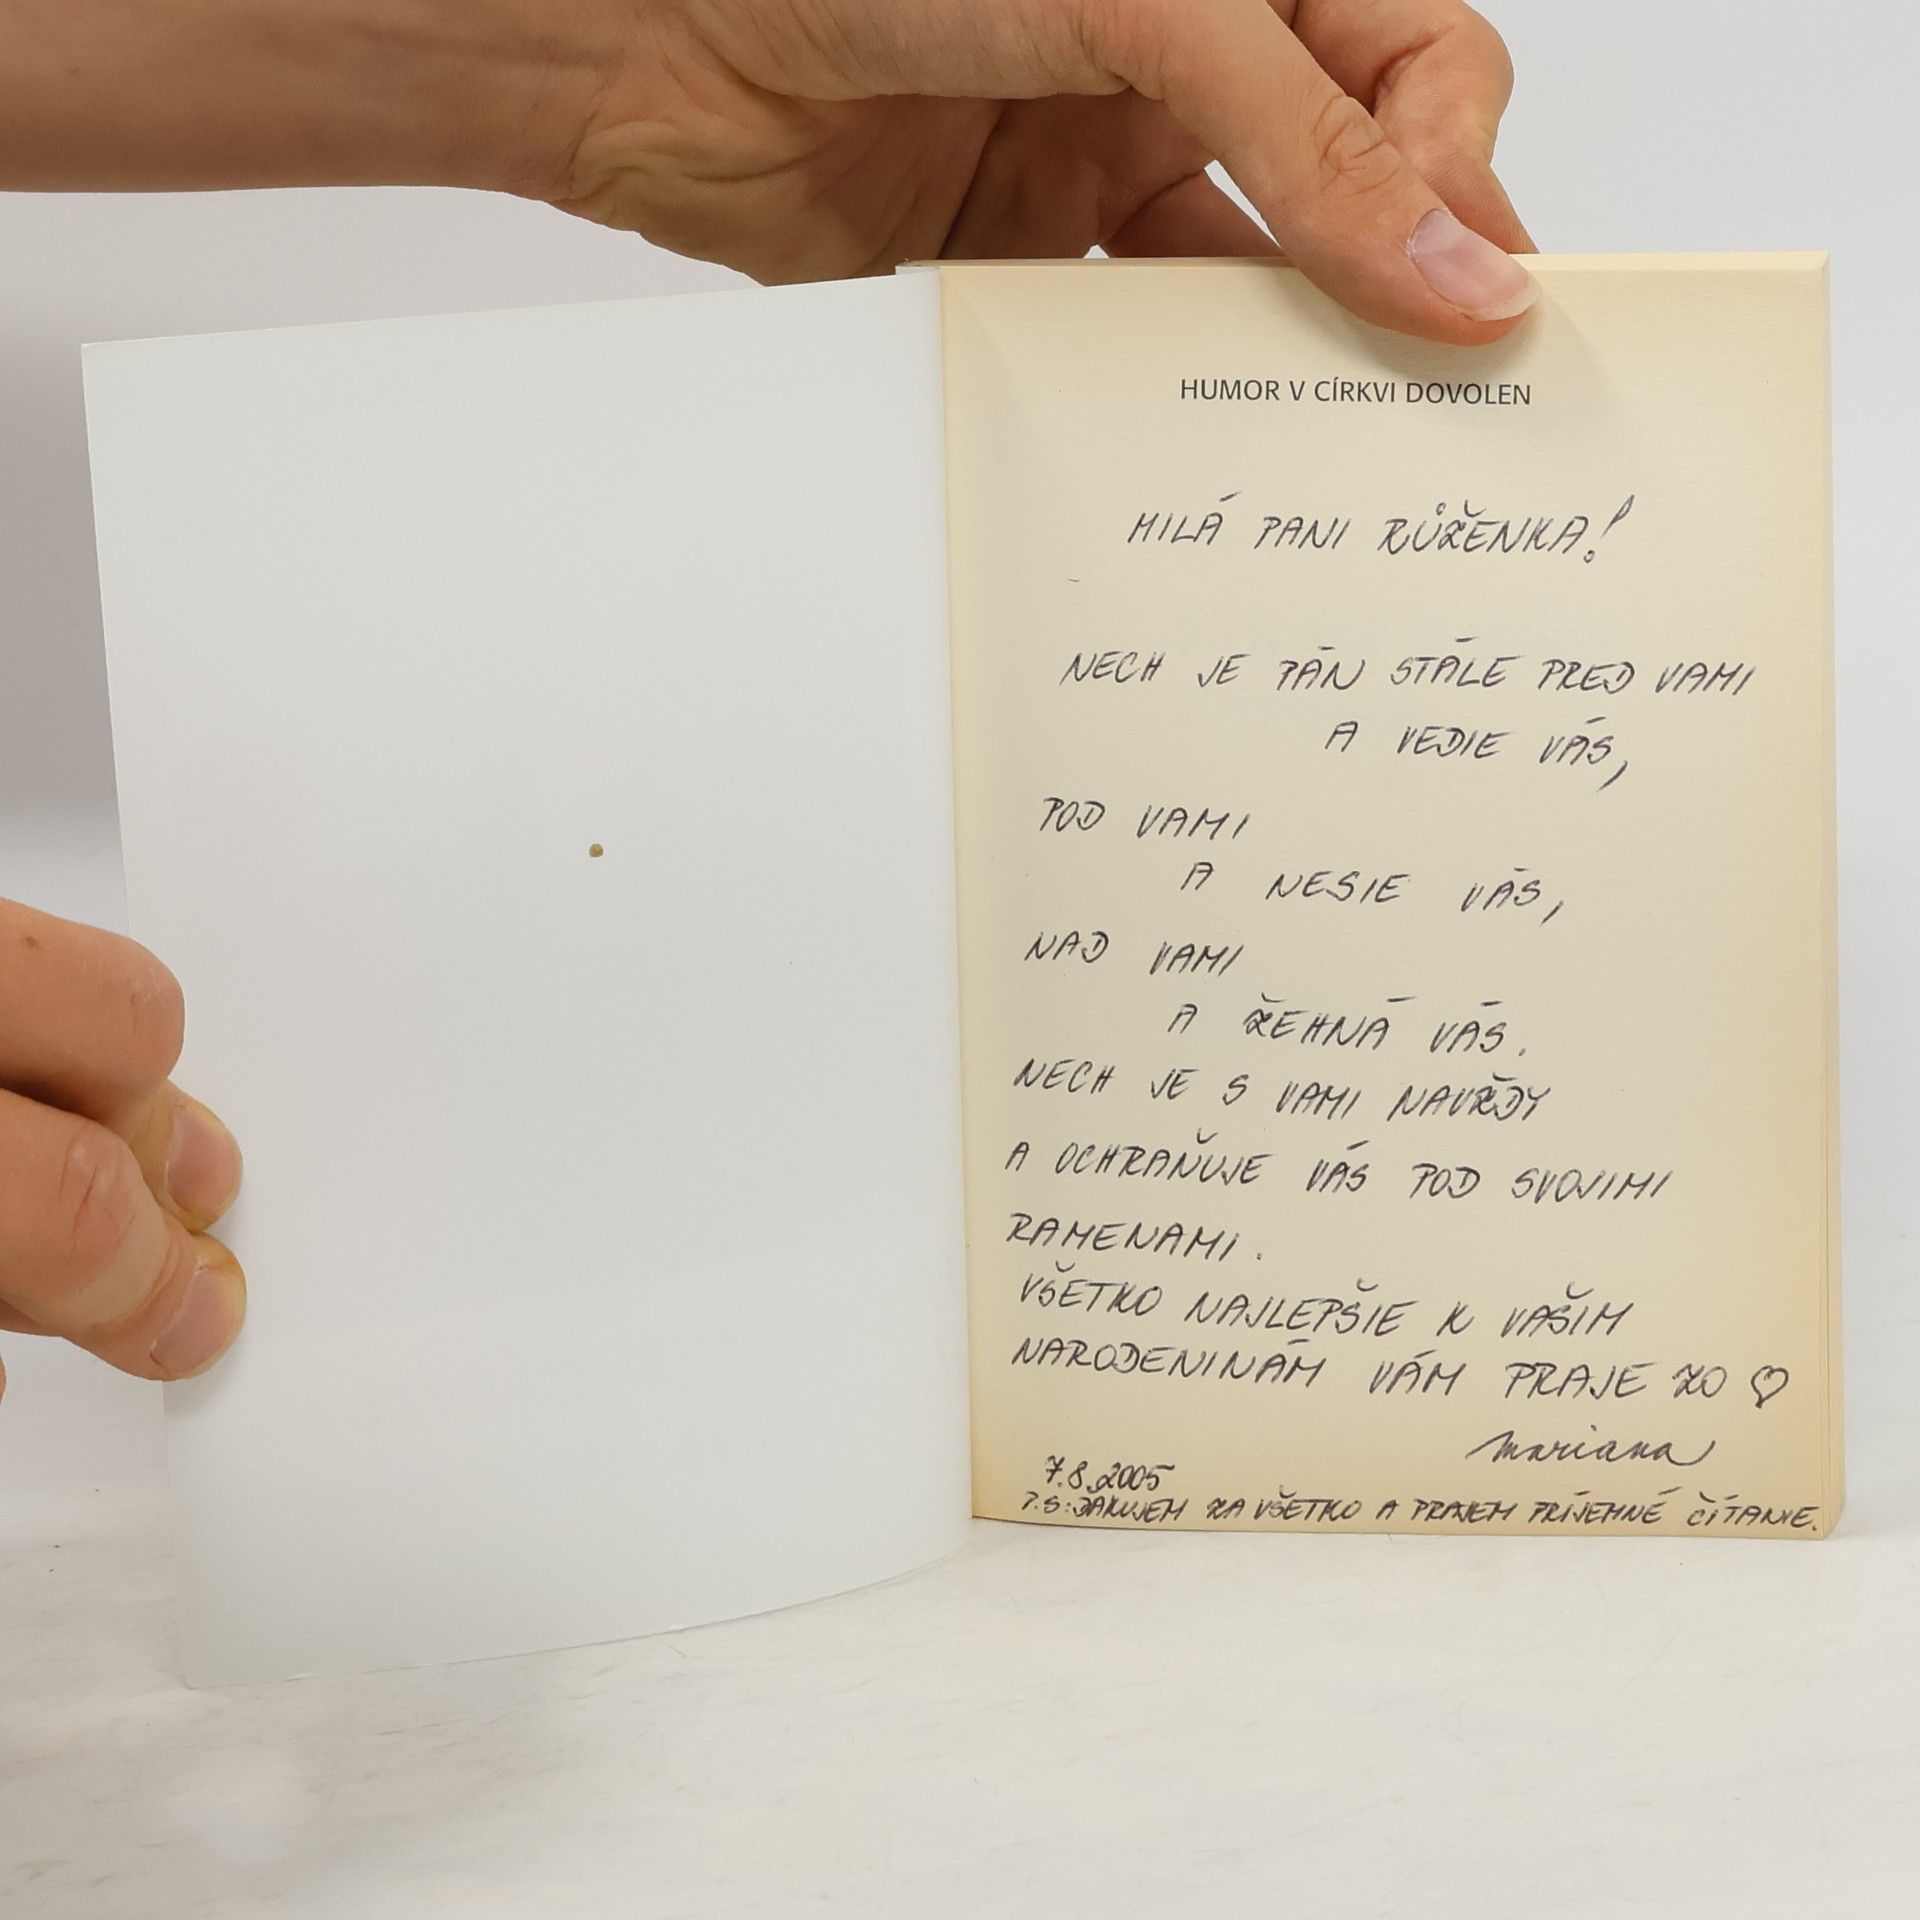 HUMOR V CÍRKVI DOVOLEN
MILÁ PANI RŮŽENKA!
NECH JE PÁN STÁLE PRED VAMI
A VEDIE VÁS,
POD VAMI
A NESIE VÁS,
NAD VAMI
A ŽEHNÁ VÁS.
NECH JE S VAMI NAVŽDY
A OCHRAŇUJE VÁS POD SVOJIMI
RAMENAMI.
VŠETKO NAJLEPŠIE K VAŠIM
NARODENINÁM VÁM PRAJE ZO ♡
Mariana
7.8.2005
P.S: ĎAKUJEM ZA VŠETKO A PRAJEM PRÍJEMNÉ ČÍTANIE.